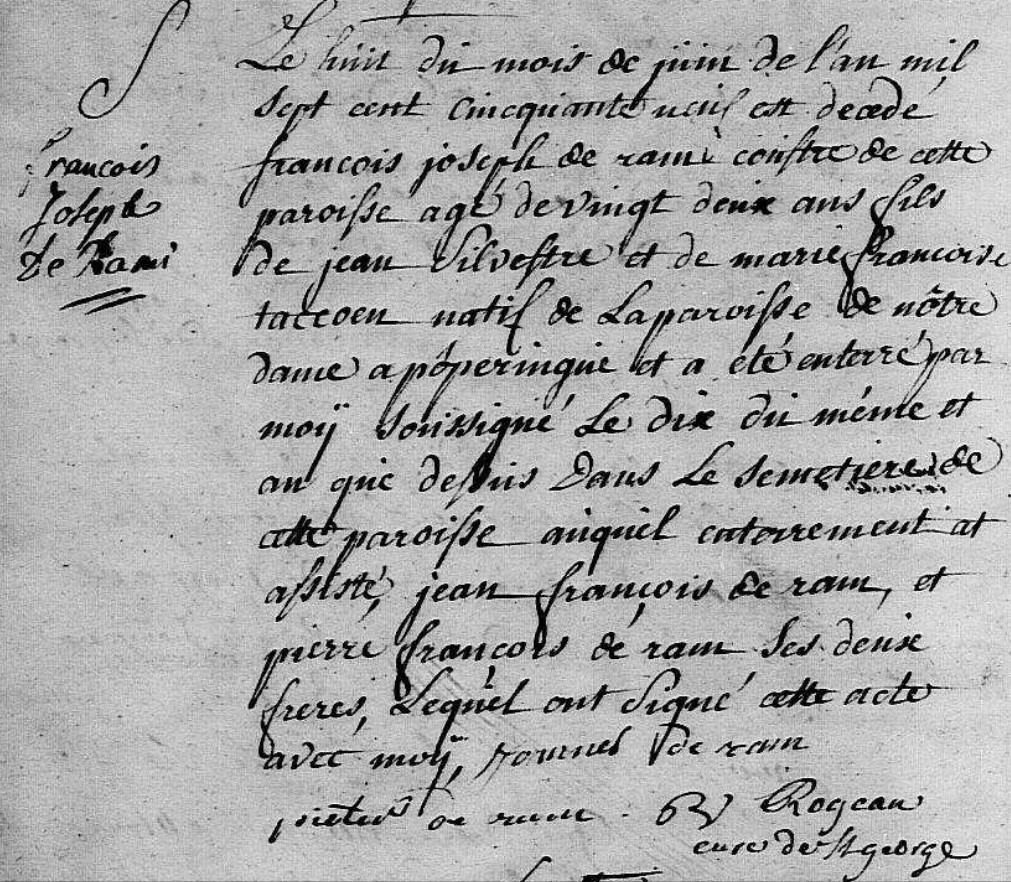 S
francois
Joseph
de Rami
Le huit du mois de juin de l'an mil
sept cent cincquante neuf est decedé
francois joseph de rami coustre de cette
paroisse agé de vingt deux ans fils
de jean silvestre et de marie francoise
taccoen natif de la paroisse de nôtre
dame a poperingue et a eté enterré par
moÿ soussigné le dix du méme et
an que dessus dans le semetiere de
cette paroisse auquel enterrement at
assisté, jean françois de ram, et
pierre françois de ram ses deux
freres, lequel ont signé cette acte
avec moÿ, de ram
pieter de ram . Rogeau
cure de st george